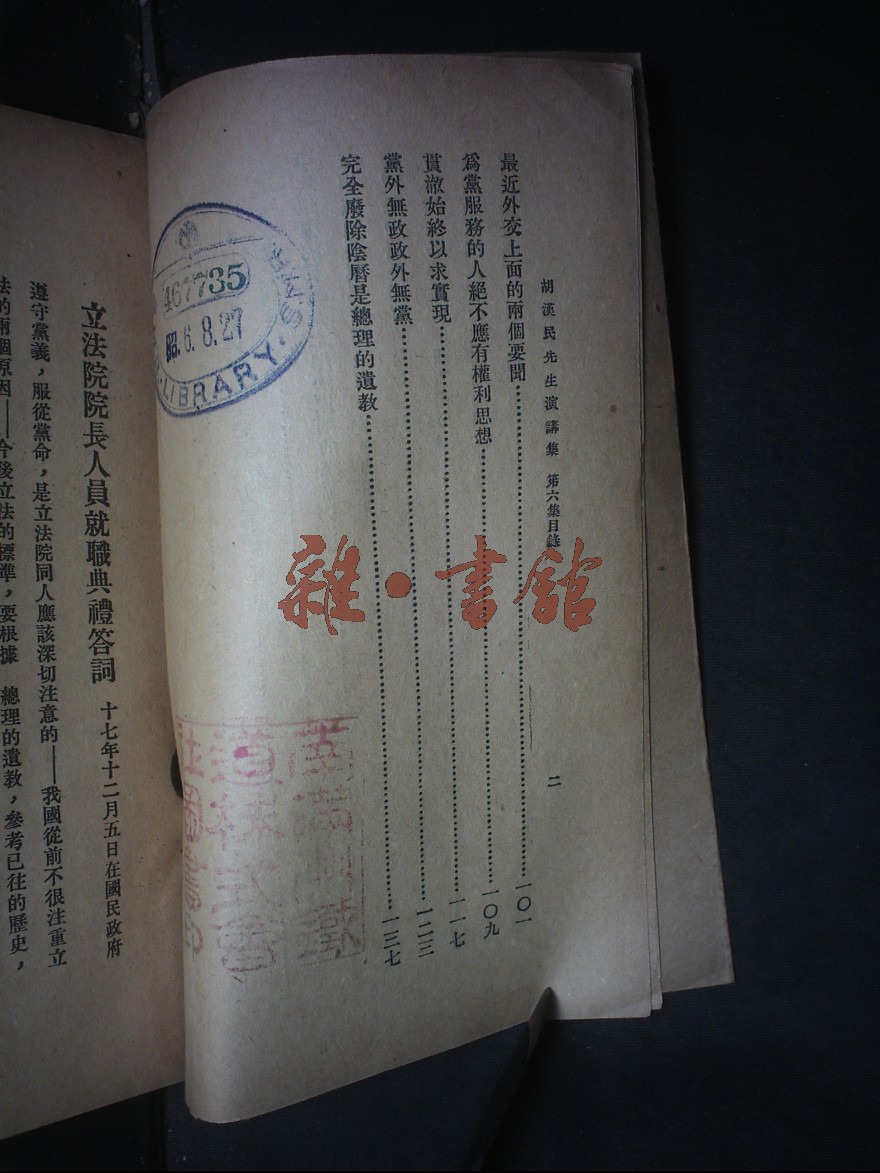 胡漢民先生演講集 第六集目錄 二
最近外交上面的兩個要聞……一〇一
爲黨服務的人絕不應有權利思想……一〇九
貫澈始終以求實現……一一七
黨外無政政外無黨……一二三
完全廢除陰曆是總理的遺教……一三七
467735
昭.6.8.27
LIBRARY.
雜·書館
立法院院長人員就職典禮答詞 十七年十二月五日在國民政府
遵守黨義，服從黨命，是立法院同人應該深切注意的——我國從前不很注重立
法的兩個原因——今後立法的標準，要根據 總理的遺教，參考已往的歷史，